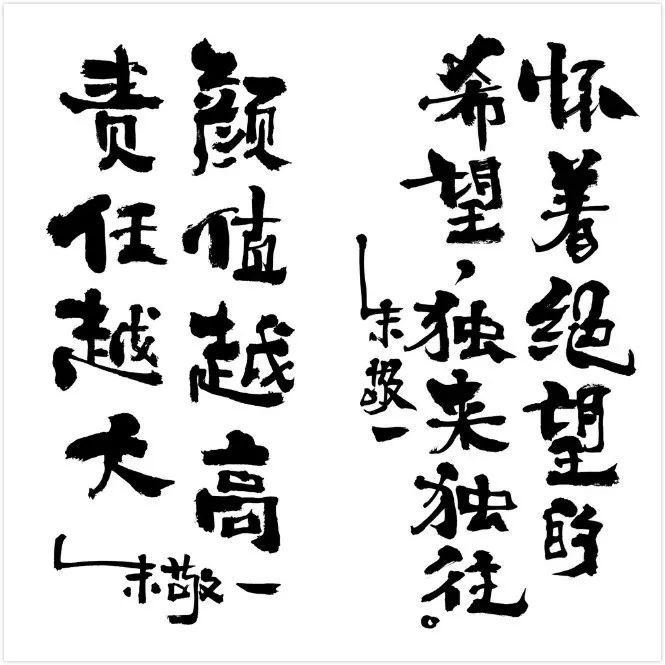 怀着绝望的
希望，独来独往。
朱敬一
颜值越高
责任越大
朱敬一